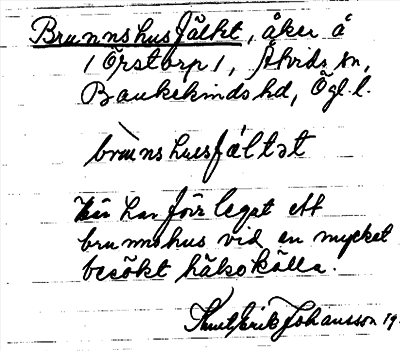 Brunnshusfältet, åker å
/ Örstorp /, Åtvids sn,
Bankekinds hd, Ögl. l.
brùnshusfál'tət
Här har förr legat ett
brunnshus vid en mycket
besökt hälsokälla.
Knut Erik Johansson 19